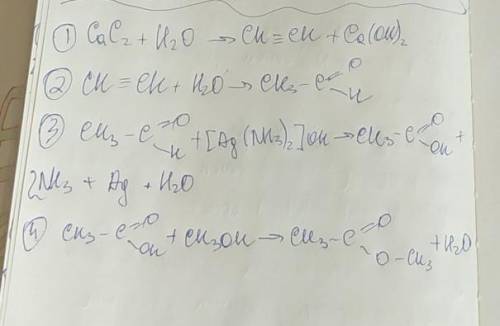 ① CaC₂ + H₂O → CH ≡ CH + Ca(OH)₂
② CH ≡ CH + H₂O → CH₃ – C =O – H
③ CH₃ – C =O – H + [Ag(NH₃)₂]OH → CH₃ – C =O – OH +
2NH₃ + Ag + H₂O
④ CH₃ – C =O – OH + CH₃OH → CH₃ – C =O – O – CH₃ + H₂O